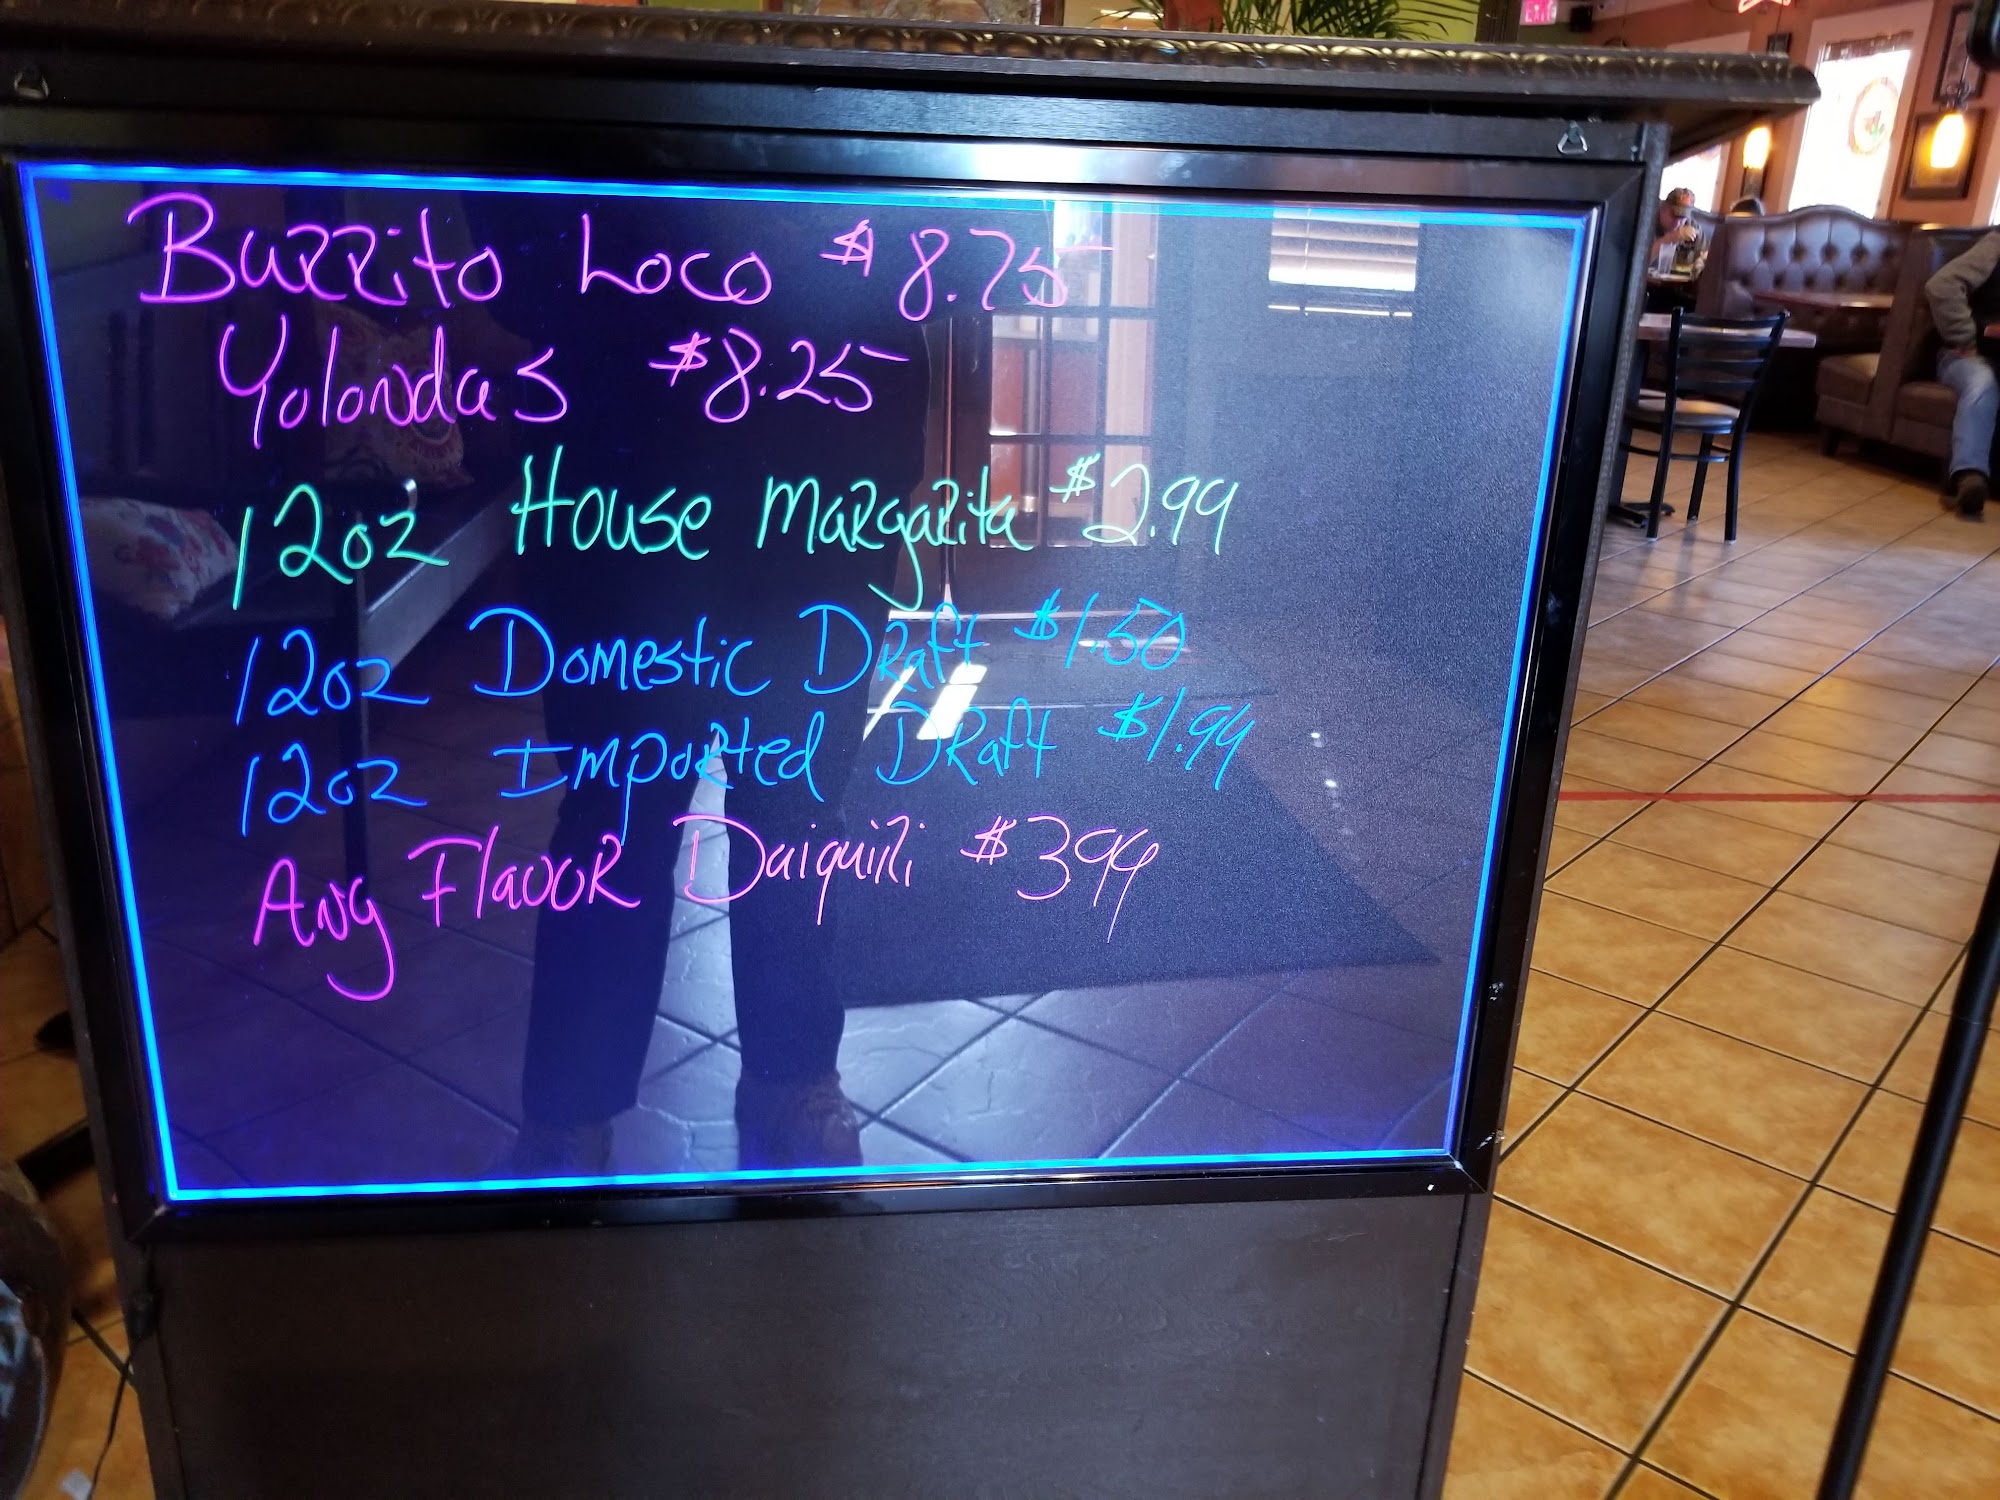 Burrito Loco $8.75
Yolondas $8.25
12oz House Margarita $2.99
12oz Domestic Draft $1.50
12oz Imported Draft $1.99
Any Flavor Daiquiri $399
EXIT